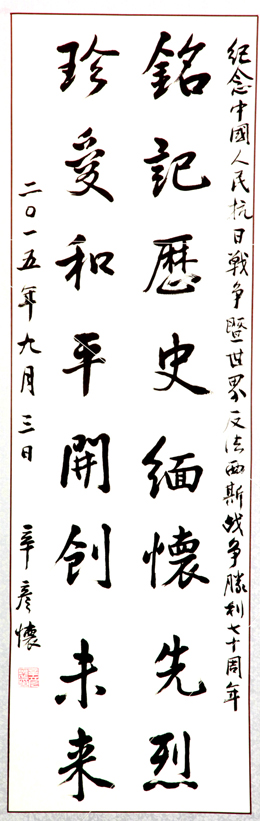 紀念中國人民抗日戰争暨世界反法西斯战争勝利七十周年
銘記歷史緬懷先烈
珍愛和平開創未来
二〇一五年九月三日 辛彦懷